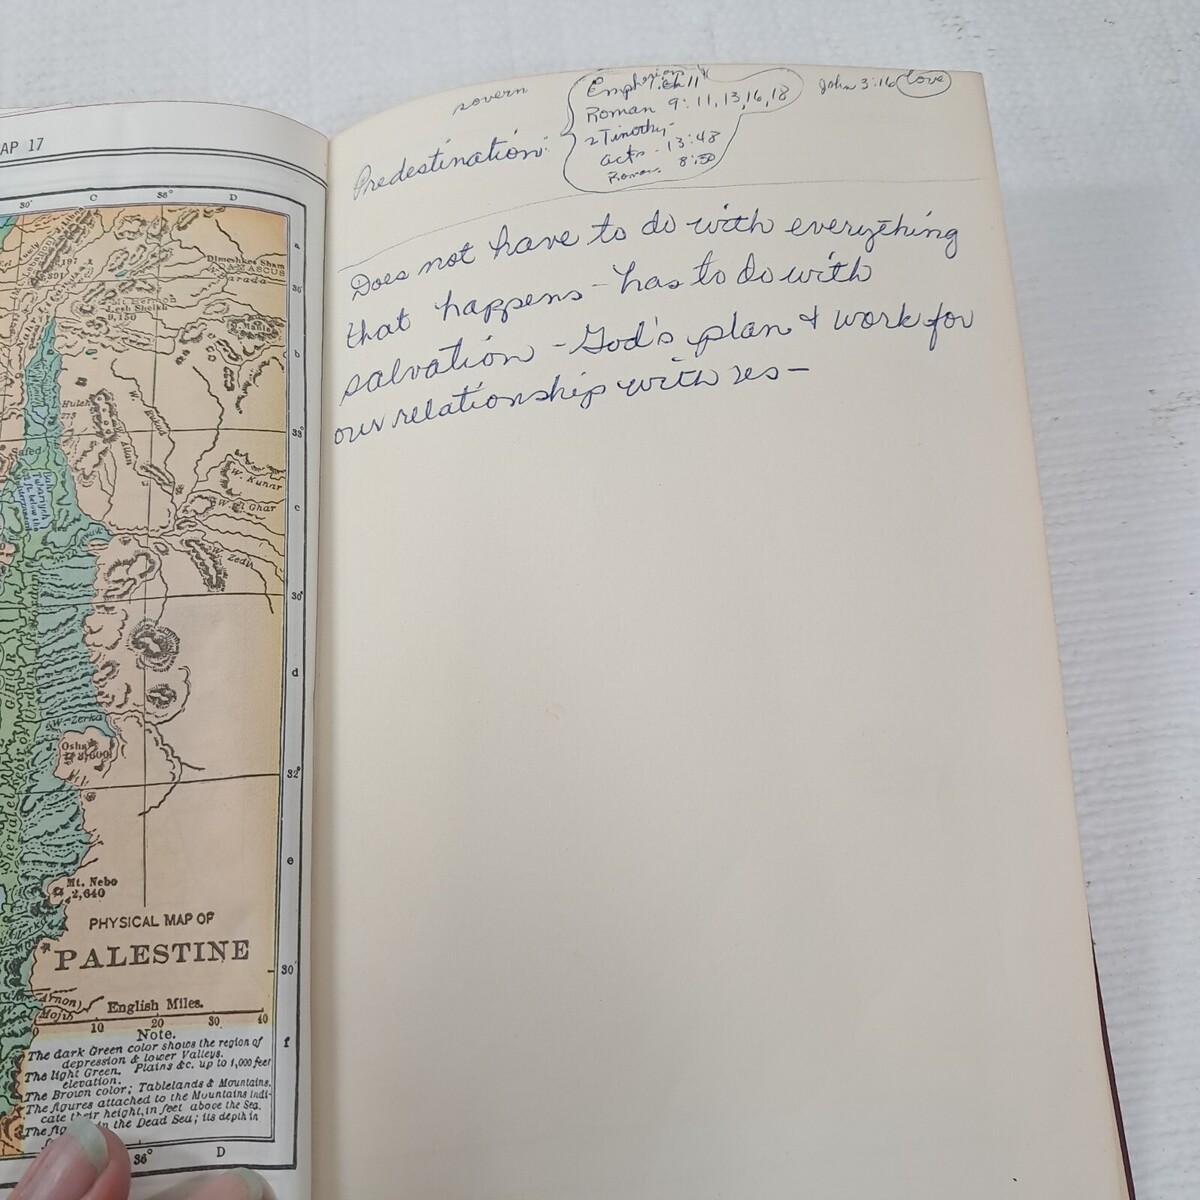 AP 17
30'
C
36°
D
Dimeshkes Sham
DAMASCUS
Barada
Mt. Hermon
J. esh Sheikh
9,150
a
b
33°
Huleh
W. Kunar
W. el Ghar
c
W. Zedy
30'
d
GHOR
W. Zerka
J. Osha
3,600
32°
e
Mt. Nebo
2,640
PHYSICAL MAP OF
PALESTINE
30'
(Arnon)
Mojib
English Miles.
0 10 20 30 40
Note.
The dark Green color shows the region of
depression & lower Valleys.
The light Green. Plains &c. up to 1,000 feet
elevation.
The Brown color; Tablelands & Mountains.
The figures attached to the Mountains indi-
cate their height, in feet above the Sea.
The fig in the Dead Sea; its depth in
f
36°
D
sovern
Predestination:
Emphesian Ch 11
Roman 9:11,13,16,18
2 Timothy-
acts - 13:48
Roman. 8:30
John 3:16 love
Does not have to do with everything
that happens - has to do with
salvation - God's plan & work for
our relationship with us -